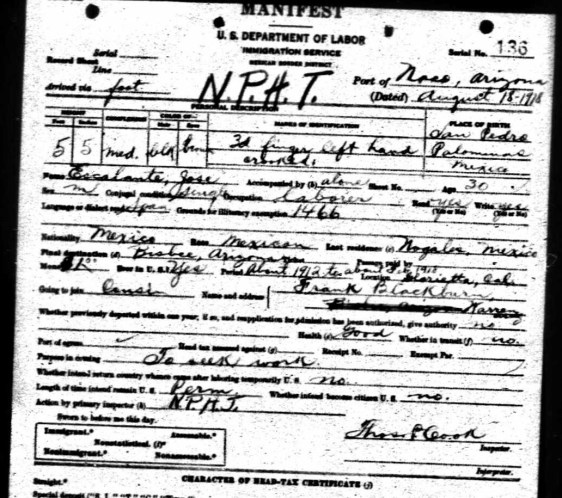 MANIFEST
U. S. DEPARTMENT OF LABOR
IMMIGRATION SERVICE
MEXICAN BORDER DISTRICT
Serial No. 136
Serial
Record Sheet
Line
Arrived via foot
N.P.H.T.
Port of Naco, Arizona
(Dated) August 18-1918
PERSONAL DESCRIPTION
HEIGHT COMPLEXION COLOR OF— MARKS OF IDENTIFICATION PLACE OF BIRTH
Feet Inches Hair Eyes
5 5 med. blk brn 3d finger left hand crooked. San Pedro Palominas Mexico
Name Escalante, Jose Accompanied by (b) alone Sheet No. Age 30
Sex m. Conjugal condition single Occupation laborer Read yes Write yes
(Yes or No) (Yes or No)
Language or dialect Span Grounds for illiteracy exemption 1466
Nationality Mexico Race Mexican Last residence (c) Nogales, Mexico
Final destination (d) Bisbee, Arizona Passage paid by
Ever in U. S.? Yes About 1912 to about 1918 Location
Going to join Cousin Name and address Frank Blackburn,
Whether previously deported within one year; if so, and reapplication for admission has been authorized, give authority no
Health (e) Good Whether in transit (f) no.
Port of egress Head tax assessed against (g) Receipt No. Receipt For.
Purpose in coming To seek work.
Whether intend return country whence came after laboring temporarily U. S. no.
Length of time intend remain U. S. Perm. Whether intend become citizen U. S. no.
Action by primary inspector (h) N.P.H.T.
Sworn to before me this day.
Immigrant.* Assessable.*
Nonstatistical. (i)*
Nonimmigrant.* Nonassessable.*
Thos P Cook
Inspector.
Interpreter.
Straight.* CHARACTER OF HEAD-TAX CERTIFICATE (j)